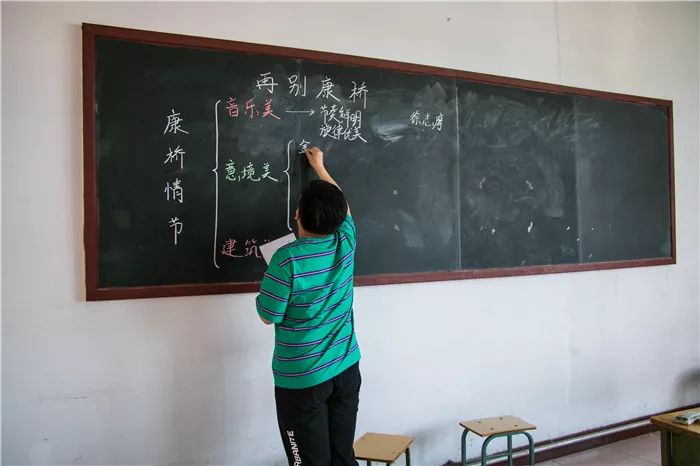 再别康桥
徐志摩
康桥情节
音乐美→节奏鲜明
旋律优美
意境美
建筑